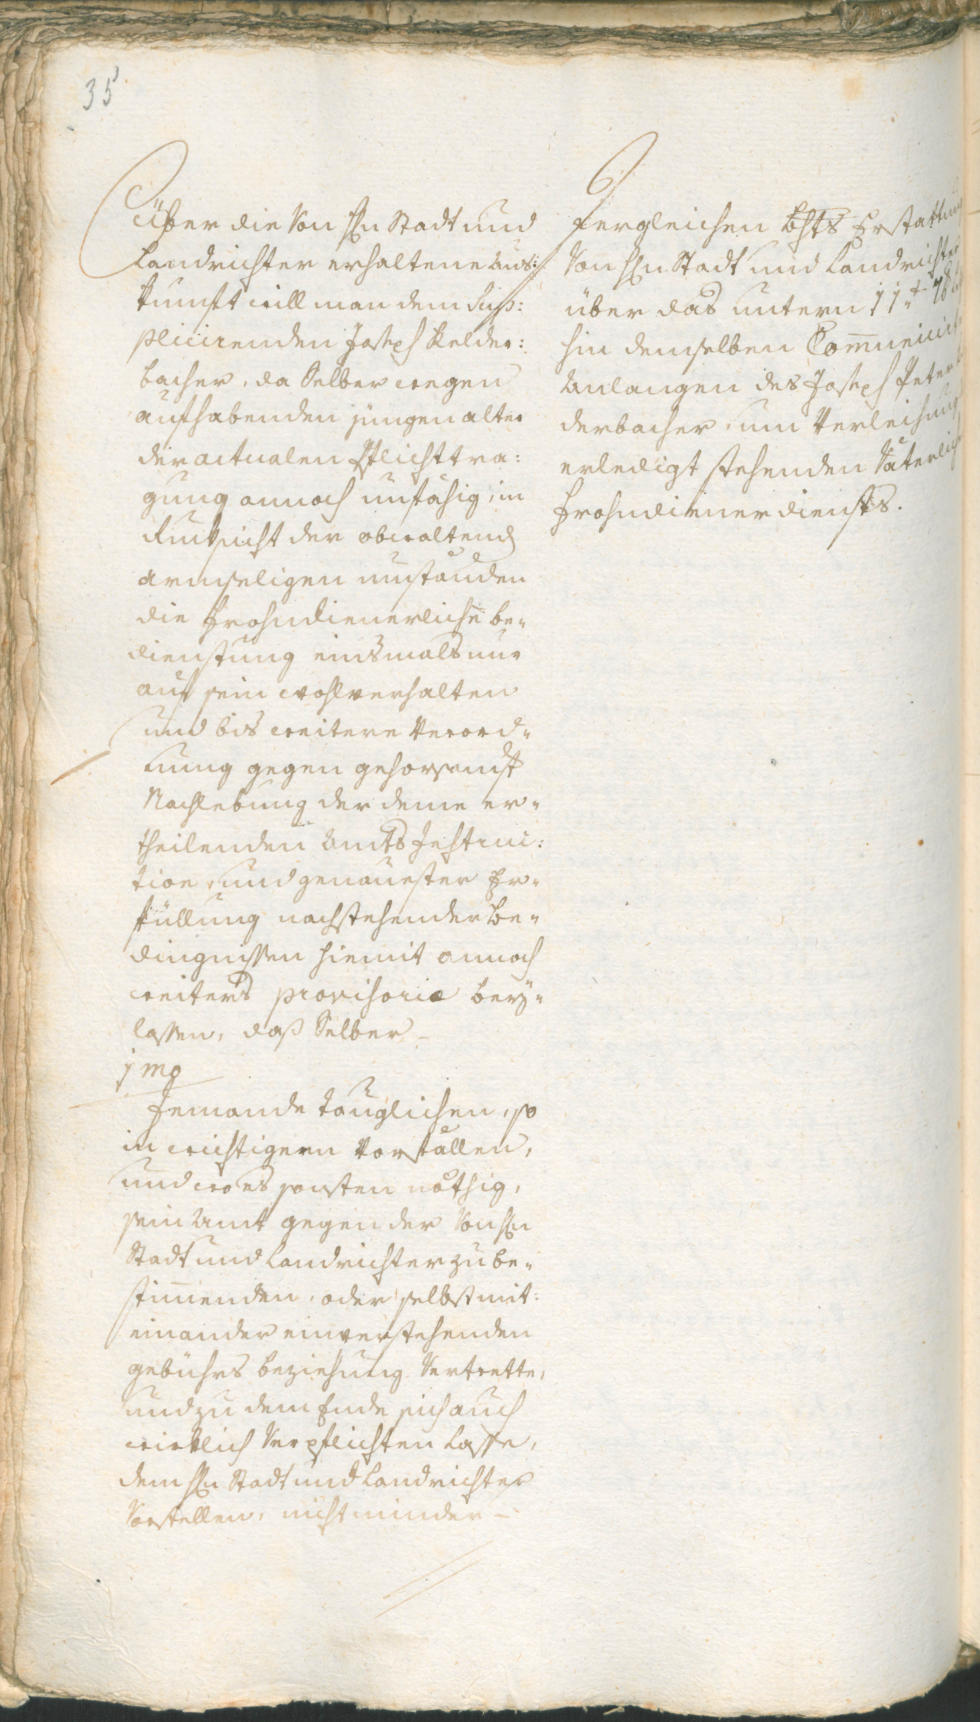 35
Über die Von Hn Stadt und
Landrichter erhaltene Aus:
kunft will man dem Sup:
plicirenden Joseph Kelder:
bacher, da Selber wegen
aufhabenden jungen alter
der actualen Pflichttra:
gung annoch unfähig, in
Rucksicht der obwaltend
armseligen umständen
die frohndienerliche be-
dienstung einsmals nur
auf sein wohlverhalten
und bis weitere Verord-
nung gegen gehorsamst
Nachlebung der deme er-
theilenden Amts Instruc:
tion, und genauester Er-
füllung nachstehender Be-
dingnissen hiemit annoch
weiters provisoriè bey-
lassen, daß Selber
1mo
Jemande tauglichen, so
in wichtigern Vorfällen,
und wo es sonsten nöthig,
sein Amt gegen der Von Hn
Stadt und Landrichter zu be-
stimenden, oder selbst mit:
einander einverstehenden
gebührs beziehung Vertrette,
und zu dem Ende sich auch
wirklich Verpflichten Lasse,
dem Hn Stadt und Landrichter
Vorstellen, nicht minder
Dergleichen Erstattung
Von Hn Stadt und Landrichter
über das untern 11t
hin demselben Comunicirte
Anlangen des Joseph Peter
derbacher, um Verleihung
erledigt stehenden Väterlich
Frohndienerdiensts.